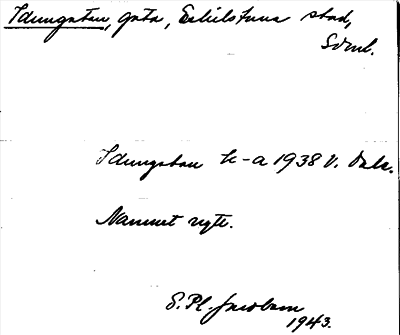 Idungatan, gata, Eskilstuna stad,
Sdml.
Idungatan k-a 1938 V. Dala.
Namnet nytt.
S. Pl. Jacobson
1943.